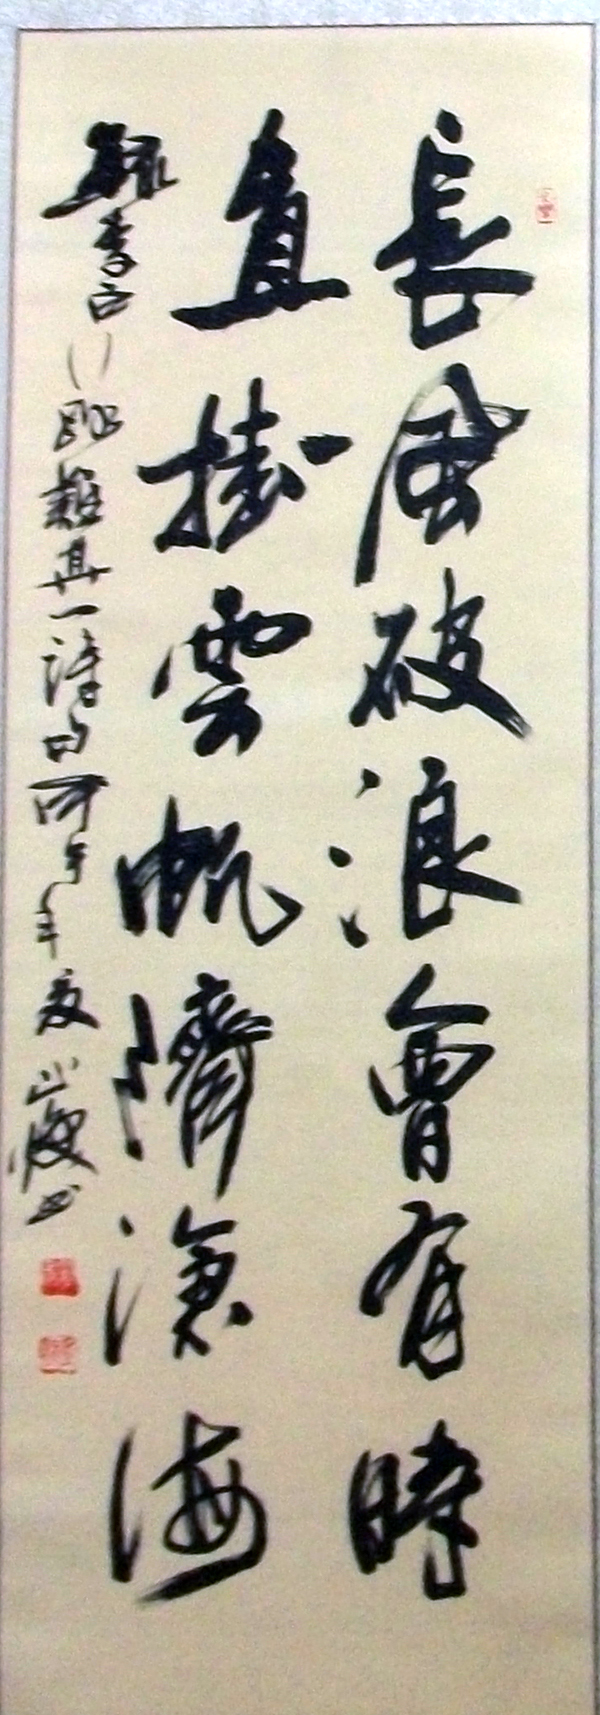 長風破浪會有時
直掛雲帆濟滄海
錄李白行路難其一詩句丙午年夏